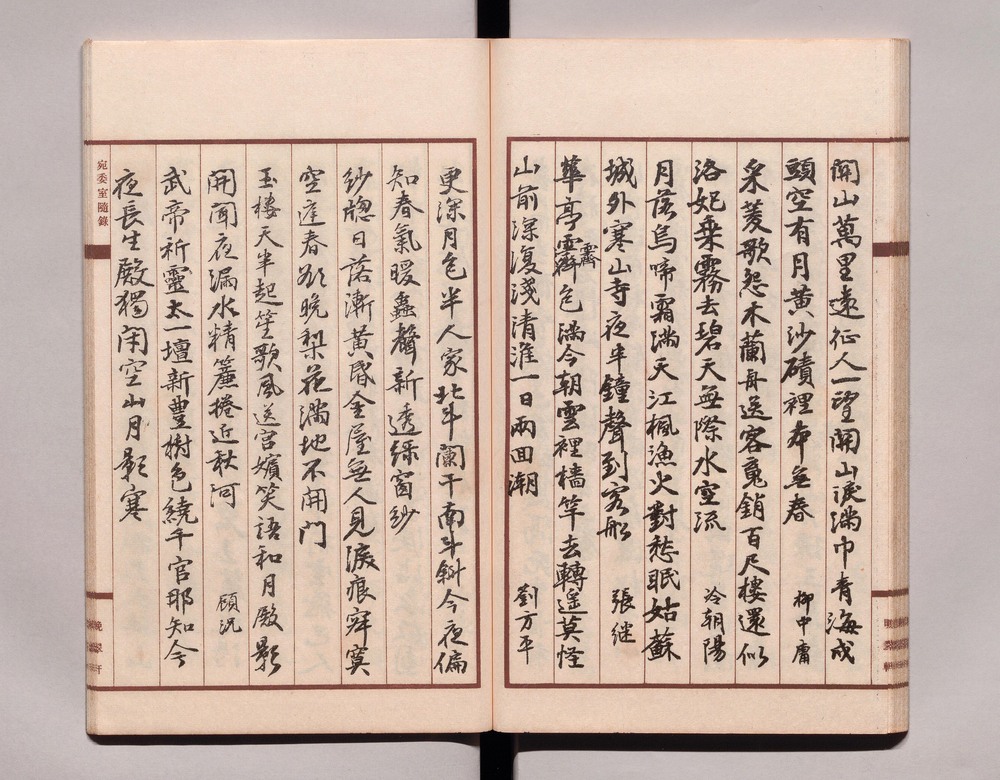 關山萬里遠征人一望關山淚滿巾青海戍
頭空有月黃沙磧裡本無春 柳中庸
采菱歌怨木蘭舟送客魂銷百尺樓還似
洛妃乘霧去碧天無際水空流 冷朝陽
月落烏啼霜滿天江楓漁火對愁眠姑蘇
城外寒山寺夜半鐘聲到客船 張继
華亭霽色滿今朝雲裡檣竿去轉遥莫怪
霽
山前深復淺清淮一日兩回潮 劉方平
更深月色半人家北斗闌干南斗斜今夜偏
知春氣暖蟲聲新透綠窗紗
紗牕日落漸黃昏金屋無人見淚痕寂寞
空庭春欲晚梨花滿地不開門
玉樓天半起笙歌風送宮嬪笑語和月殿影
開聞夜漏水精簾捲近秋河 顧況
武帝祈靈太一壇新豐樹色繞千官那知今
夜長生殿獨閉空山月影寒
宛委室隨錄